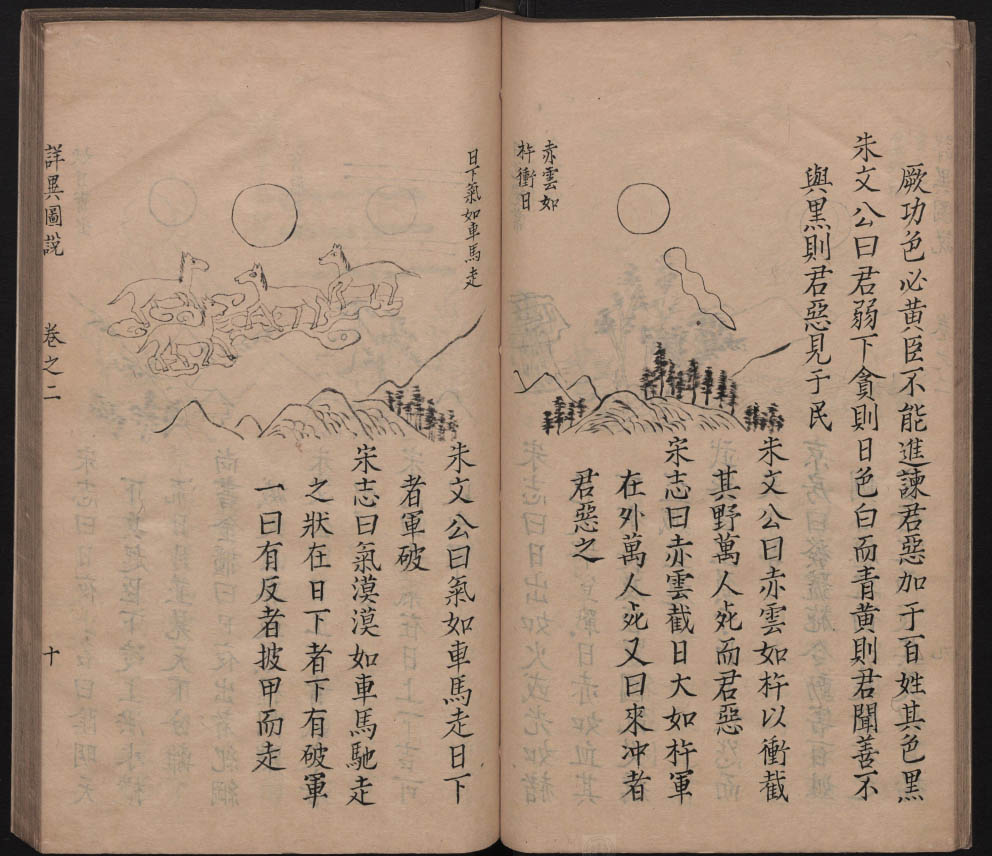 厥功色必黄臣不能進諫君惡加于百姓其色黑
朱文公曰君弱下貪則日色白而青黄則君聞善不
與黑則君惡見于民
赤雲如
杵衝日
朱文公曰赤雲如杵以衝截
其野萬人死而君惡
宋志曰赤雲截日大如杵軍
在外萬人死又曰來冲者
君惡之
日下氣如車馬走
朱文公曰氣如車馬走日下
者軍破
宋志曰氣漠漠如車馬馳走
之狀在日下者下有破軍
一曰有反者披甲而走
詳異圖說 卷之二 十